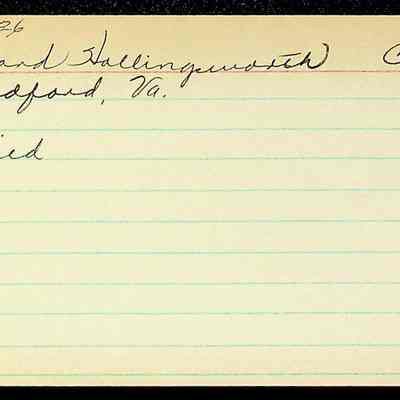 26
and Hollingsworth
dford, Va.
ied